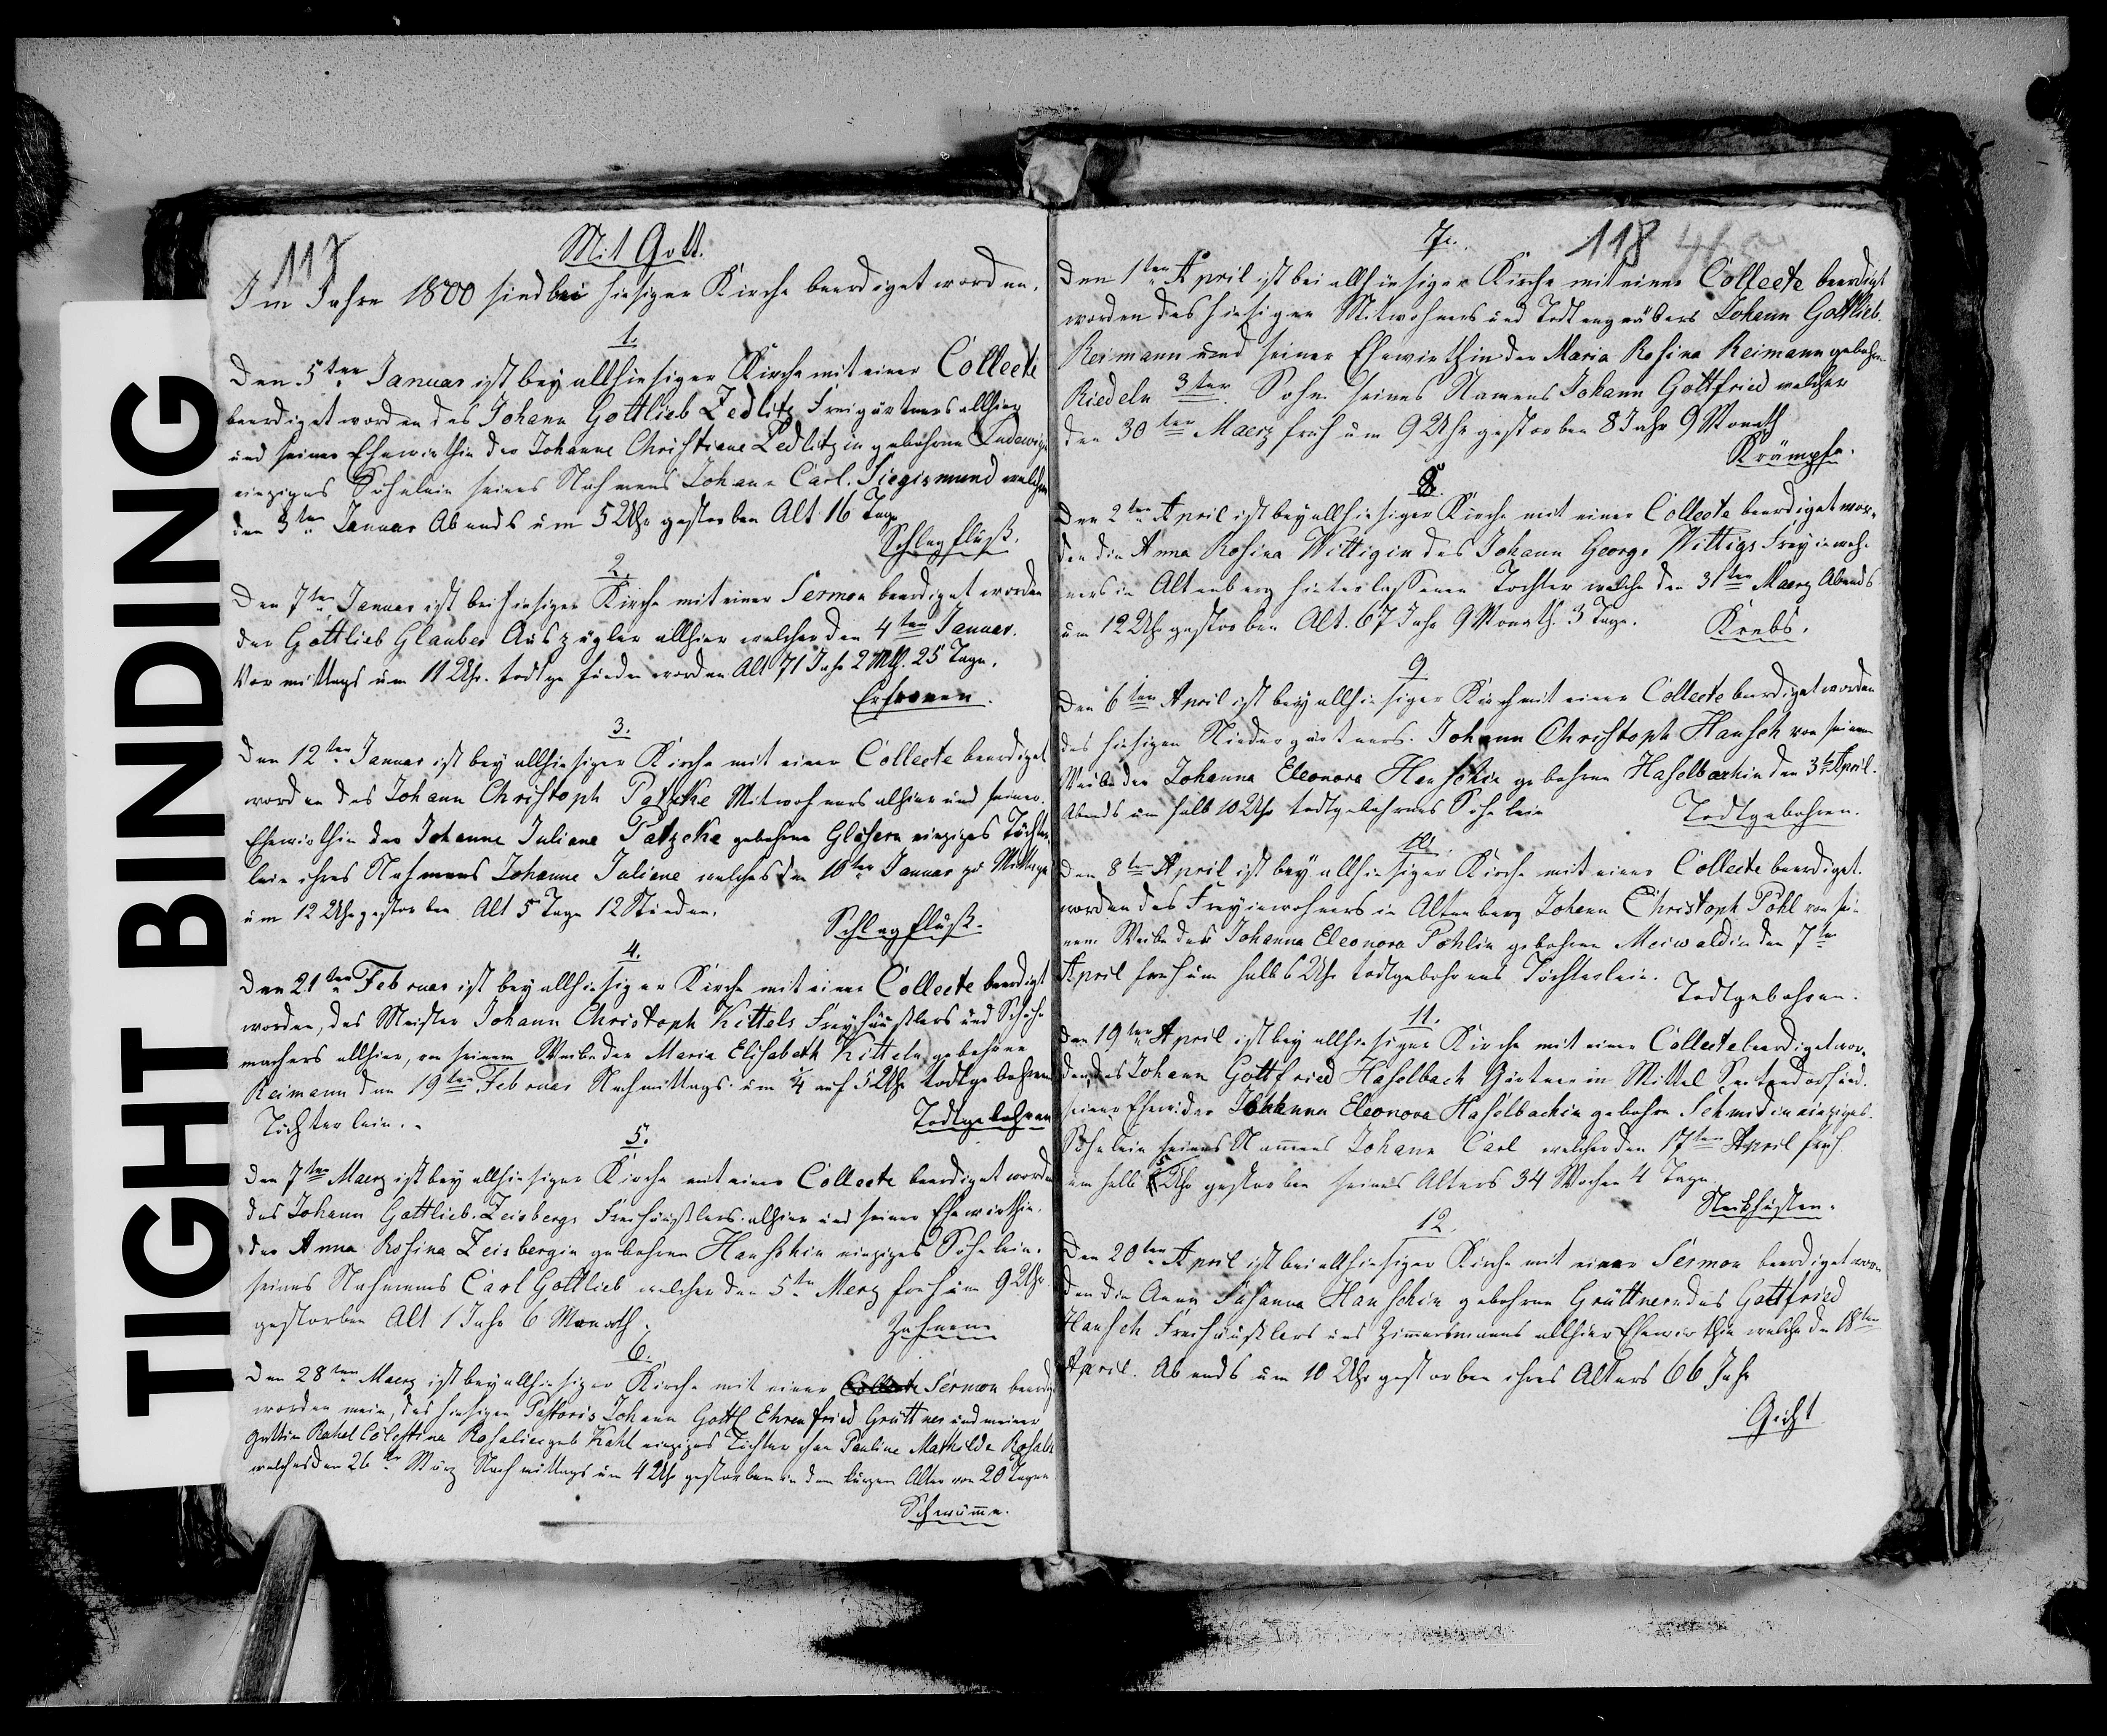 TIGHT BINDING
117
Mit Gott.
Im Jahre 1800 sind bei hiesiger Kirche beerdiget worden.
1.
Den 5ten Januar ist bey allhiesiger Kirche mit einer Collecte
beerdiget worden des Johann Gottlieb Zedlitz Freigärtners allhier
und seiner Ehewirthin der Johanne Christiane Zedlitzin gebohrne Ludewigin
einziges Söhnlein seines Nahmens Johann Carl Siegismund welches
den 3ten Januar Abends um 5 Uhr gestorben Alt 16 Tage
Schlagfluß.
2.
Den 7ten Januar ist bei hiesiger Kirche mit einer Sermon beerdiget worden
der Gottlieb Glauber Auszügler allhier welcher den 4ten Januar.
Vormittags um 11 Uhr. todtgefunden worden Alt 71 Jahr 2 Mth. 25 Tage.
Erfroren.
3.
Den 12ten Januar ist bey allhiesiger Kirche mit einer Collecte beerdiget
worden des Johann Christoph Patzcke Mitwohners alhier und seiner
Ehewirthin der Johanne Juliane Patzcke gebohrne Gläsern einziges Töchter
lein ihres Nahmens Johanne Juliane welches den 10ten Januar zu Mittage
um 12 Uhr gestorben Alt 5 Tage 12 Stunden.
Schlagfluß.
4.
Den 21ten Februar ist bey allhiesiger Kirche mit einer Collecte beerdigt
worden, des Meister Johann Christoph Kittels Freyhäußlers und Schuh
machers allhier, von seinem Weibe der Maria Elisabeth Kitteln gebohrne
Reimann den 19ten Februar Nachmittags um 1/4 auf 5 Uhr todtgebohrnes
Töchterlein.
Todtgebohren
5.
Den 7ten Maerz ist bey allhiesiger Kirche mit einer Collecte beerdiget worden
des Johann Gottlieb Zeisbergs Freihäußlers alhier und seiner Ehewirthin.
der Anna Rosina Zeisbergin gebohrne Hanschin einziges Söhnlein.
seines Nahmens Carl Gottlieb welcher den 5ten Merz früh um 9 Uhr
gestorben Alt 1 Jahr 6 Monath.
Zahnen
6.
Den 28ten Maerz ist bey allhiesiger Kirche mit einer Sermon beerdigt
worden mein, des hiesigen Pastoris Johann Gottl Ehrenfried Grüttner und meiner
Gattin Rahel Cölestina Rosalie geb Kahl einziges Töchterchen Pauline Mathilde Rosalie
welches den 26ten März Nachmittags um 4 Uhr gestorben in dem kurzen Alter von 20 Tagen
Schwämme.
7.
118
Den 1ten April ist bei allhiesiger Kirche mit einer Collecte beerdigt
worden des hiesigen Mitwohners und Todtengräbers Johann Gottlieb.
Reimann und seiner Ehewirthin der Maria Rosina Reimann gebohrn
Riedeln 3ter Sohn seines Namens Johann Gottfried welcher
den 30ten Maerz früh um 9 Uhr gestorben 8 Jahr 9 Monath
Krämpfe.
8.
Den 2ten April ist bey allhiesiger Kirche mit einer Collecte beerdiget wor-
den die Anna Rosina Wittigin des Johann George Wittigs Freyinwoh-
ners in Altenberg hinterlassenen Tochter welche den 31ten Maerz Abends
um 12 Uhr gestorben Alt. 67 Jahr 9 Monath. 3 Tage.
Krebs.
9.
Den 6ten April ist bey allhiesiger Kirch mit einer Collecte beerdiget worden
des hiesigen Niedergärtners. Johann Christoph Hansch von seinem
Weibe der Johanna Eleonora Hanschin gebohrne Haselbachin den 3t April.
Abends um halb 10 Uhr todtgebohrnes Söhnlein
Todtgebohren.
10.
Den 8ten April ist bey allhiesiger Kirche mit einer Collecte beerdiget.
worden des Freyinwohners in Altenberg Johann Christoph Pohl von sei-
nem Weibe der Johanna Eleonora Pohlin gebohrne Meiwaldin den 7ten
April früh um halb 6 Uhr todtgebohrnes Töchterlein.
Todtgebohren.
11.
Den 19ten April ist bey allhiesiger Kirche mit einer Collecte beerdiget wor-
den, des Johann Gottfried Haselbach Gärtner in Mittel
seiner Ehew. der Johanna Eleonora Haselbachin gebohrn Schmidin einziges
Söhnlein seines Namens Johann Carl welcher den 17ten April früh
um halb 5 Uhr gestorben seines Alters 34 Wochen 4 Tage
Steckhusten.
12.
Den 20ten April ist bei allhiesiger Kirche mit einer Sermon beerdiget wor-
den die Anna Susanna Hanschin gebohrne Grüttnern des Gottfried
Hansch Freihäußlers und Zimmermanns allhier Ehewirthin welche den 18ten
April. Abends um 10 Uhr gestorben ihres Alters 66 Jahr
Gicht